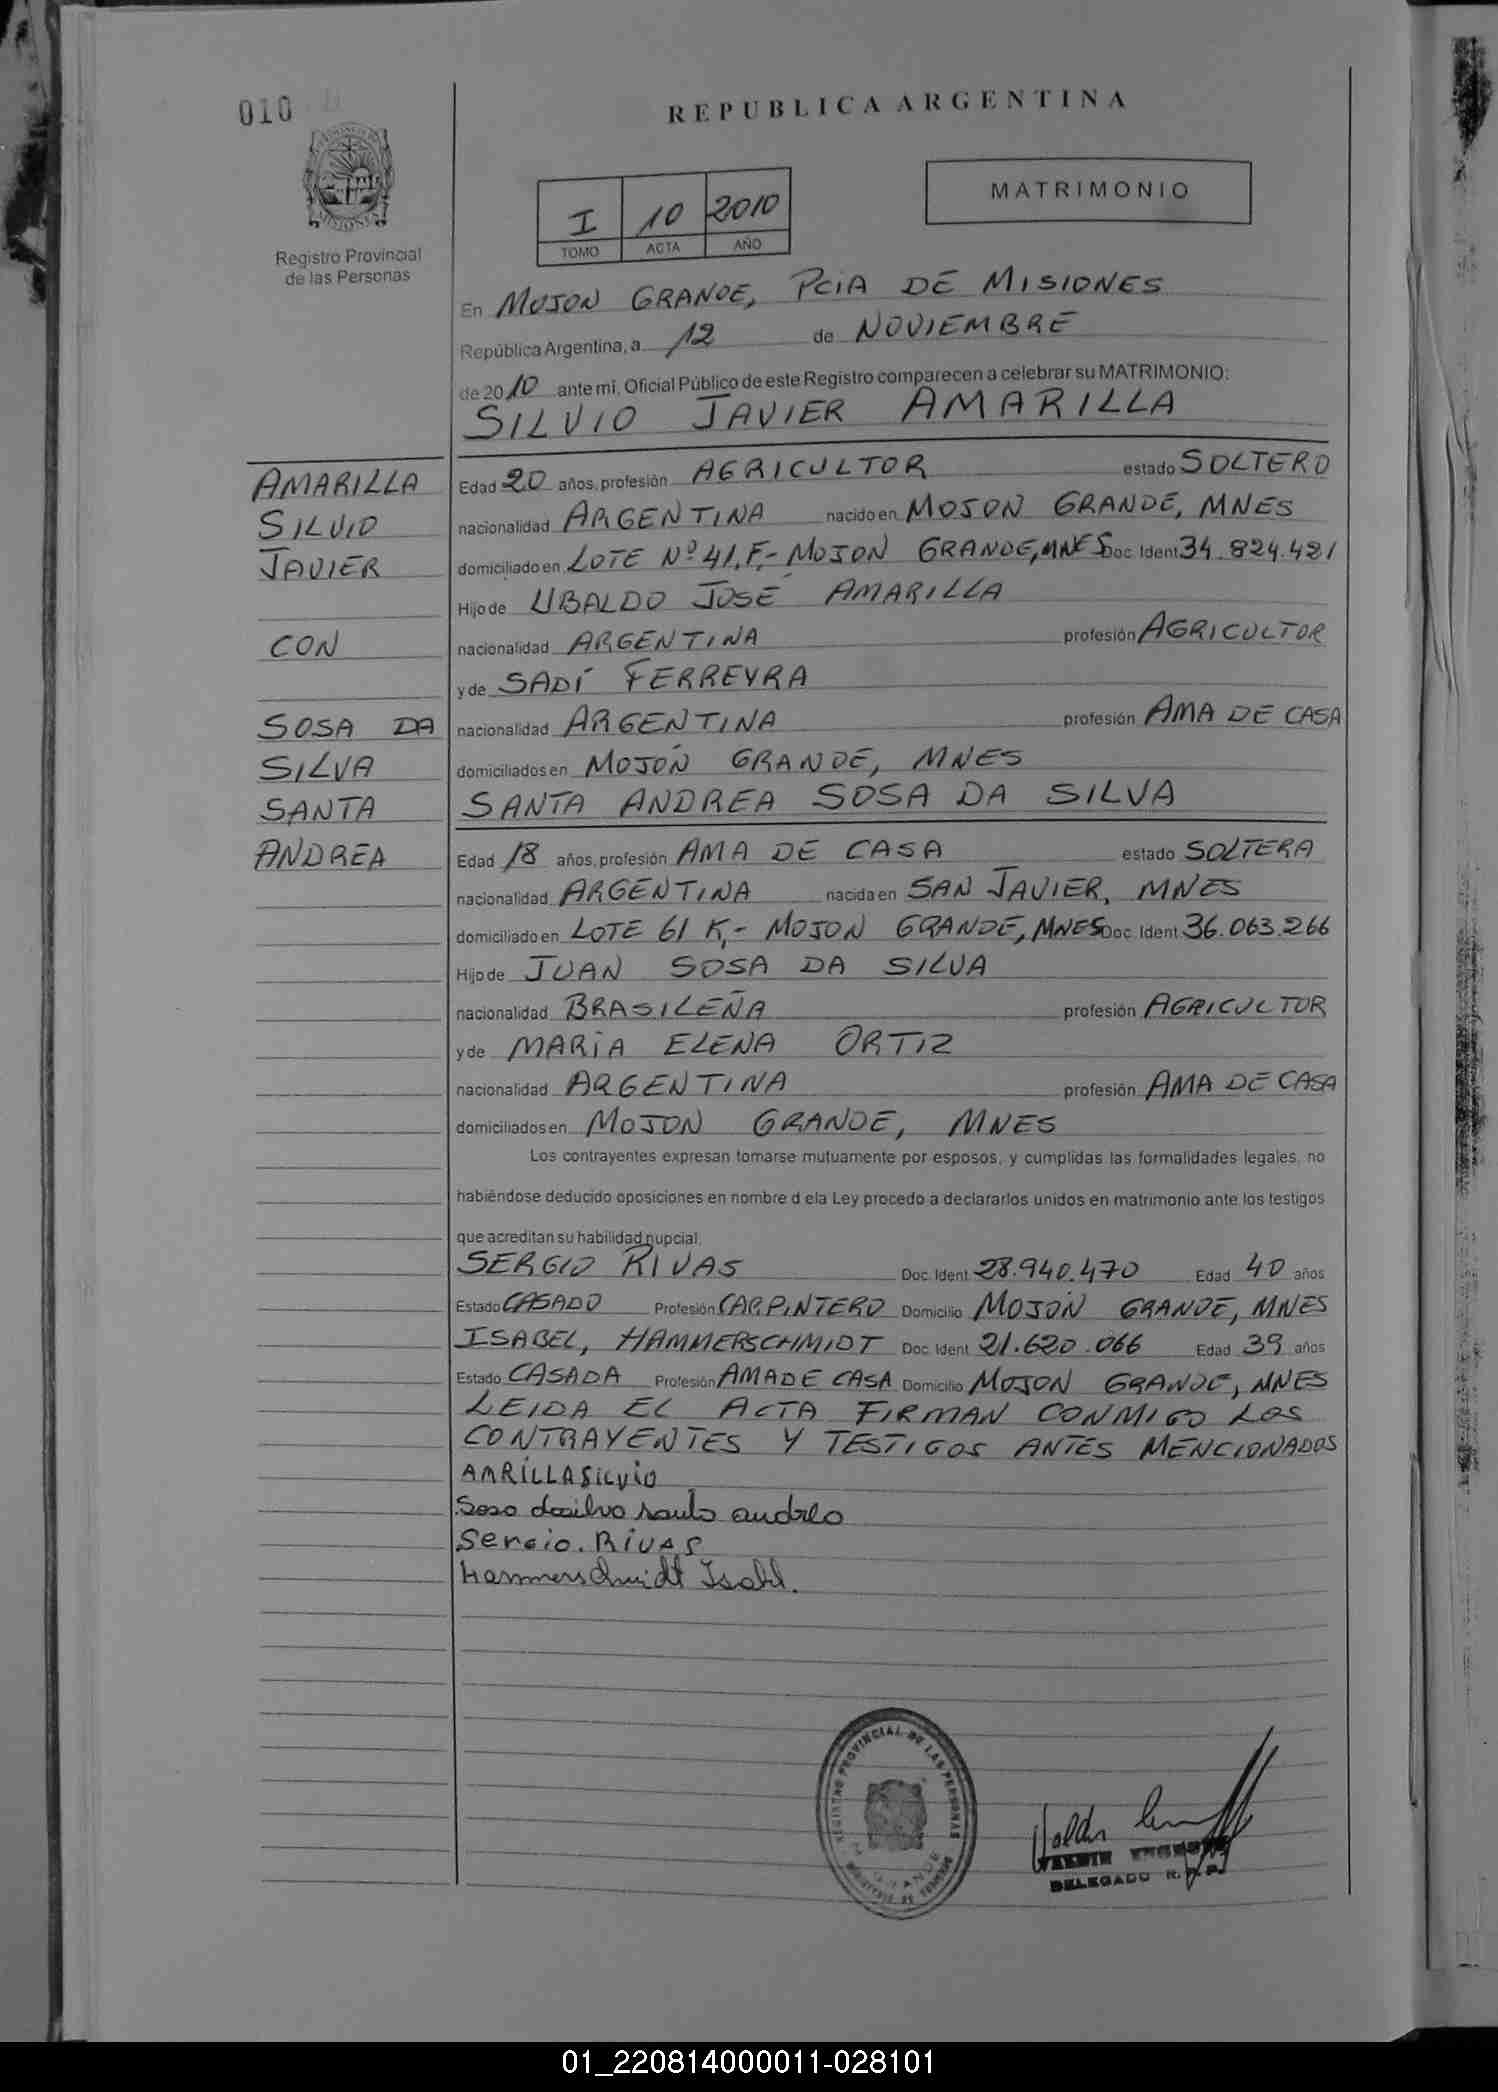 010
REPUBLICA ARGENTINA
MATRIMONIO
I 10 2010
TOMO ACTA AÑO
Registro Provincial
de las Personas
En MOJON GRANDE, PCIA DE MISIONES
República Argentina, a 12 de NOVIEMBRE
de 2010 ante mi, Oficial Público de este Registro comparecen a celebrar su MATRIMONIO:
SILVIO JAVIER AMARILLA
AMARILLA
SILVIO
JAVIER
CON
SOSA DA
SILVA
SANTA
ANDREA
Edad 20 años, profesión AGRICULTOR estado SOLTERO
nacionalidad ARGENTINA nacido en MOJON GRANDE, MNES
domiciliado en LOTE Nº 41, F,- MOJON GRANDE, MNES Doc. Ident 34.824.421
Hijo de UBALDO JOSÉ AMARILLA
nacionalidad ARGENTINA profesión AGRICULTOR
y de SADÍ FERREYRA
nacionalidad ARGENTINA profesión AMA DE CASA
domiciliados en MOJÓN GRANDE, MNES
SANTA ANDREA SOSA DA SILVA
Edad 18 años, profesión AMA DE CASA estado SOLTERA
nacionalidad ARGENTINA nacida en SAN JAVIER, MNES
domiciliado en LOTE 61 K,- MOJON GRANDE, MNES Doc. Ident 36.063.266
Hijo de JUAN SOSA DA SILVA
nacionalidad BRASILEÑA profesión AGRICULTOR
y de MARÍA ELENA ORTIZ
nacionalidad ARGENTINA profesión AMA DE CASA
domiciliados en MOJON GRANDE, MNES
Los contrayentes expresan tomarse mutuamente por esposos, y cumplidas las formalidades legales, no
habiéndose deducido oposiciones en nombre d ela Ley procedo a declararlos unidos en matrimonio ante los testigos
que acreditan su habilidad nupcial.
SERGIO RIVAS Doc. Ident 28.940.470 Edad 40 años
Estado CASADO Profesión CARPINTERO Domicilio MOJÓN GRANDE, MNES
ISABEL, HAMMERSCHMIDT Doc. Ident 21.620.066 Edad 39 años
Estado CASADA Profesión AMA DE CASA Domicilio MOJON GRANDE, MNES
LEIDA EL ACTA FIRMAN CONMIGO LOS
CONTRAYENTES Y TESTIGOS ANTES MENCIONADOS
AMRILLA SILVIO
Sosa dasilva santa andrea
Sergio. RIVAS
Hammerschmidt Isabel.
REGISTRO PROVINCIAL DE LAS PERSONAS
DELEGADO R.P.P.
01_220814000011-028101